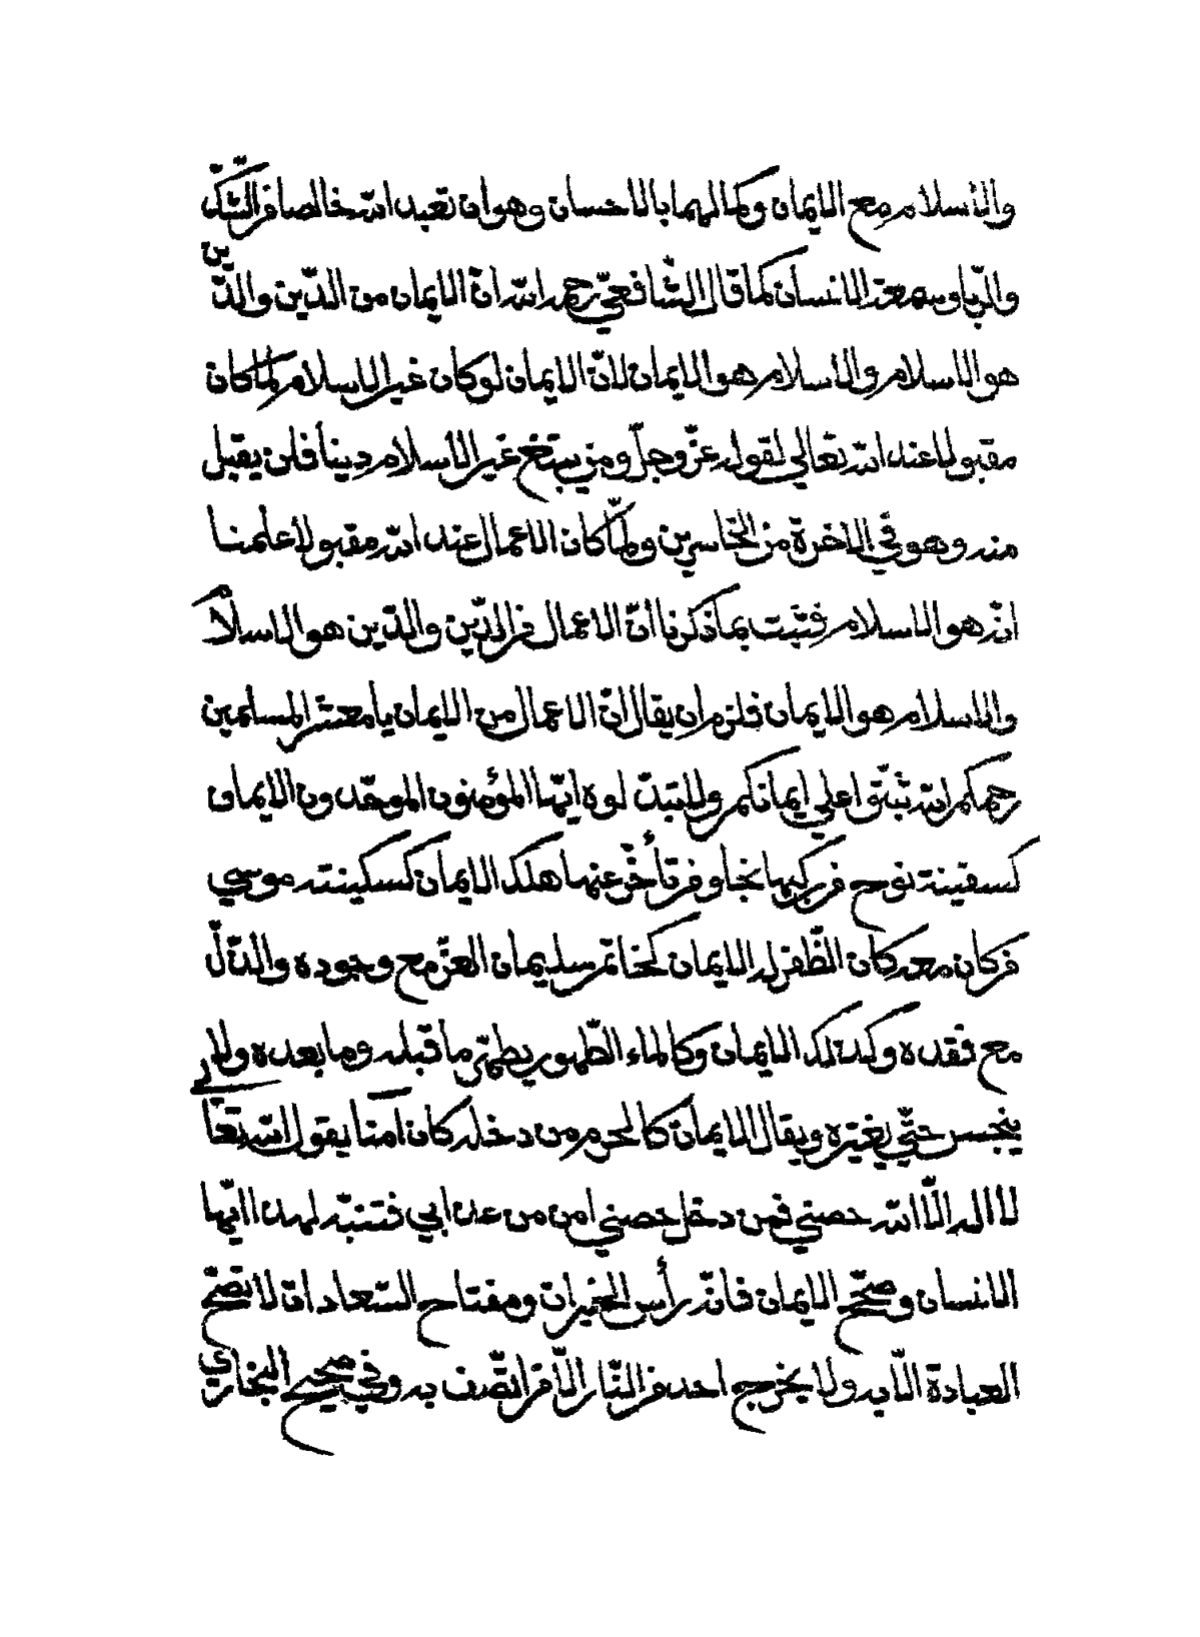 والاسلام مع الايمان وكمالهما بالاحسان وهو ان تعبد الله خالصا من الشكّ
والرّيا وسمعة الانسان كما قال الشّافعيّ رحمه الله انّ الايمان من الدّين والدّين
هو الاسلام والاسلام هو الايمان لانّ الايمان لو كان غير الاسلام لما كان
مقبولا عند الله تعالي لقوله عزّ وجلّ ومن يبتغ غير الاسلام دينا فلن يقبل
منه وهو في الاخرة من الخاسرين ولمّا كان الاعمال عند الله مقبولا علمنا
انّه هو الاسلام فثبت بما ذكرنا انّ الاعمال من الدّين والدّين هو الاسلام
والاسلام هو الايمان فلزم ان يقال انّ الاعمال من الايمان يا معشر المسلمين
رحمكم الله ثبّتوا علي ايمانكم ولا تبدّلوه ايّها المؤمنون الموحّدون الايمان
كسفينة نوح من ركبها نجا ومن تأخّر عنها هلك الايمان كسكينة موسي
من كان معه كان الظّفر له الايمان كخاتم سليمان العزّ مع وجوده والذّلّ
مع فقده وكذلك الايمان وكالماء الطّهور يطهّر ما قبله وما بعده ولا
ينجس حتّي يغيّره ويقال الايمان كالحرم من دخله كان آمنا يقول الله تعا
لا اله الّا الله حصني فمن دخل حصني امن من عذابي فتنبّه لهذا ايّها
الانسان وصحّح الايمان فانّه رأس الخيرات ومفتاح السّعادات لا تصحّ
العبادة الّا به ولا يخرج احد من النّار الّا من اتّصف به وفي صحيح البخاري